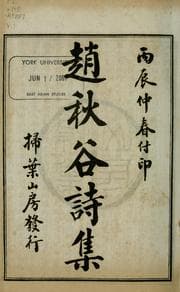 丙辰仲春付印
趙秋谷詩集
掃葉山房發行
YORK UNIVERSITY
JUN 1 / 200
EAST ASIAN STUDIES